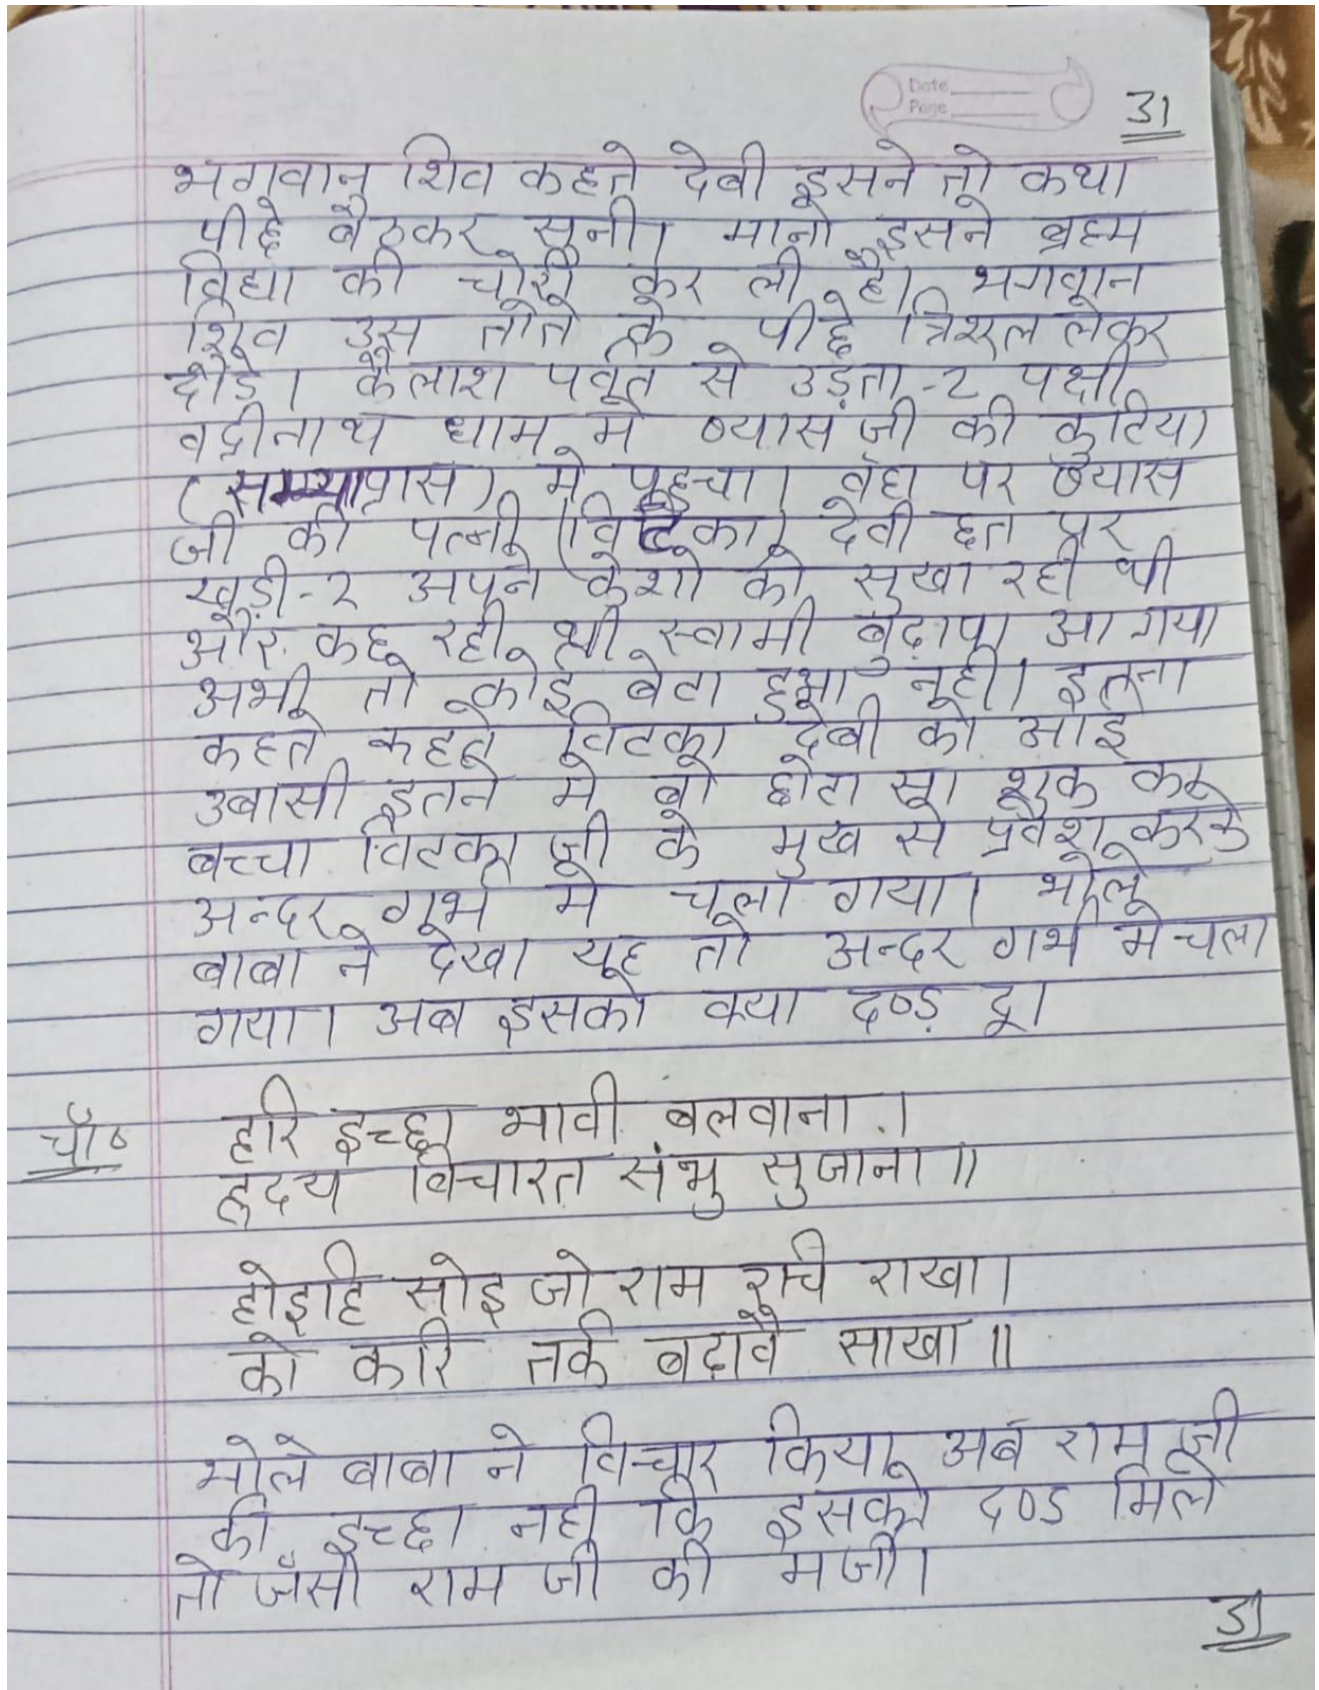 Date
Page
31
भगवान शिव कहते देवी इसने तो कथा
पीछे बैठकर सुनी। मानो इसने ब्रह्म
विद्या की चोरी कर ली है। भगवान
शिव उस तोते के पीछे त्रिशूल लेकर
दौड़े। कैलाश पर्वत से उड़ता-2 पक्षी
बद्रीनाथ धाम मे व्यास जी की कुटिया
(सम्याप्रास) मे पहुचा। वहा पर व्यास
जी की पत्नी (विटिका) देवी छत पर
खड़ी-2 अपने केशो को सुखा रही थी
और कह रही थी स्वामी बुढ़ापा आ गया
अभी तो कोई बेटा हुआ नही। इतना
कहते कहते विटका देवी को आई
उबासी इतने मे वो छोटा सा शुक का
बच्चा विटका जी के मुख से प्रवेश करके
अन्दर गर्भ मे चला गया। भोले
बाबा ने देखा यह तो अन्दर गर्भ मे चला
गया। अब इसको क्या दण्ड़ दू।
चौ० हरि इच्छा भावी बलवाना।
हृदय विचारत संभु सुजाना॥
होइहि सोइ जो राम रचि राखा।
को करि तर्क बढ़ावै साखा॥
भोले बाबा ने विचार किया अब राम जी
की इच्छा नही कि इसको दण्ड मिले
तो जैसी राम जी की मर्जी।
31